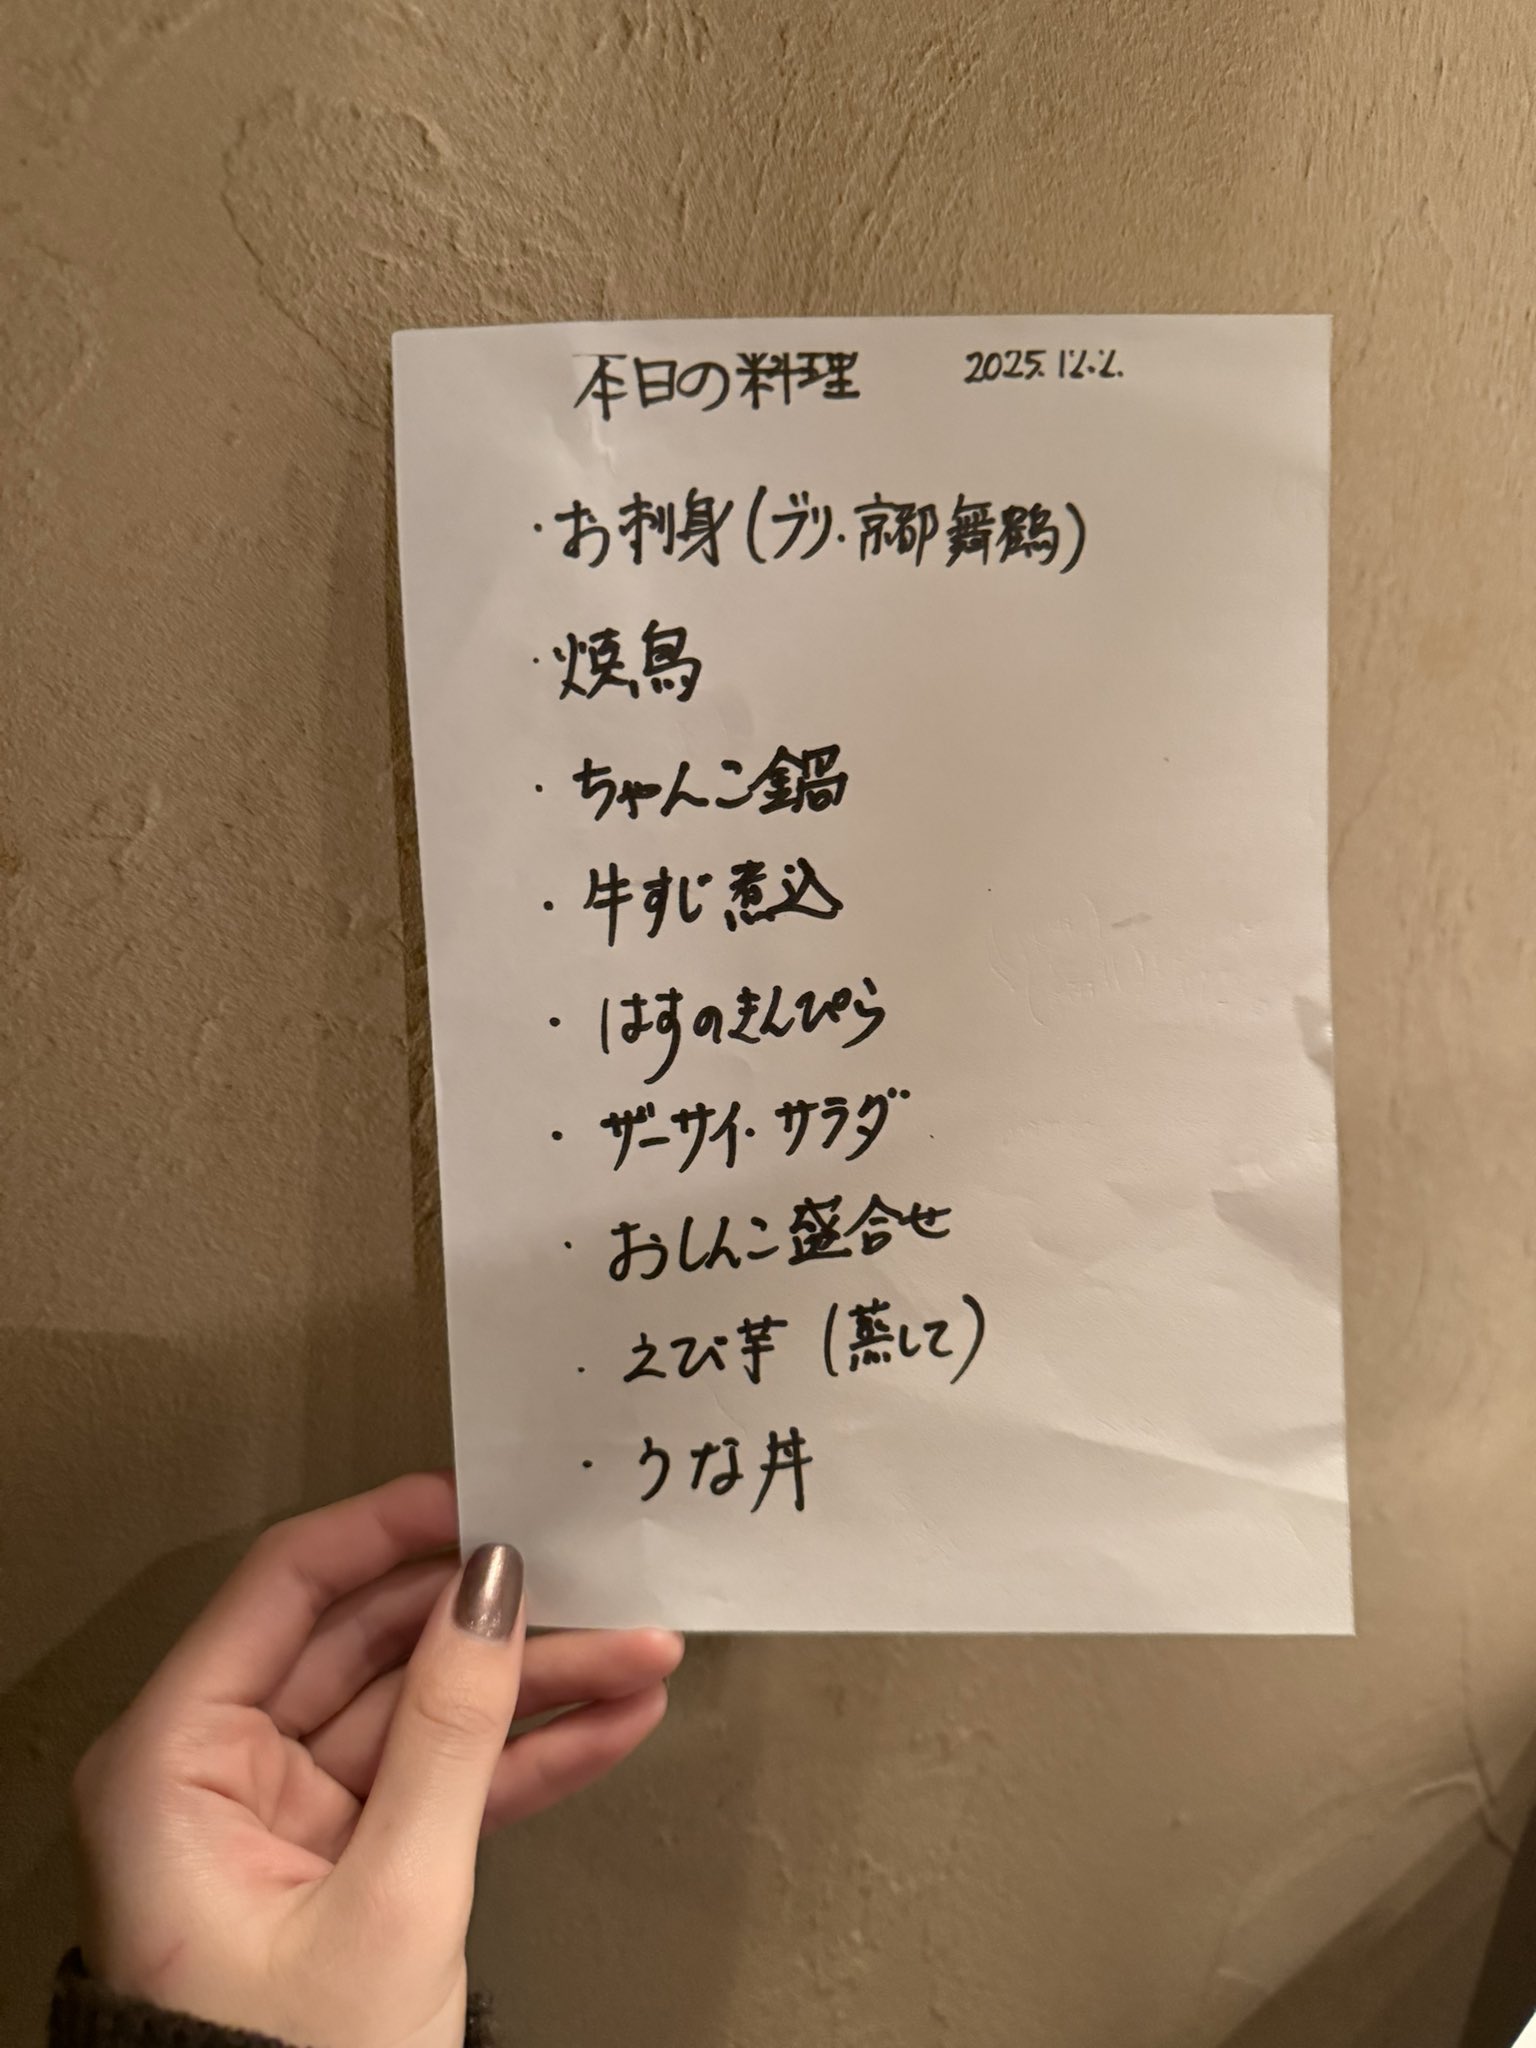 本日の料理 2025.12.2.
・お刺身(ブリ・京都舞鶴)
・焼鳥
・ちゃんこ鍋
・牛すじ煮込
・はすのきんぴら
・ザーサイ・サラダ
・おしんこ盛合せ
・えび芋(蒸して)
・うな丼